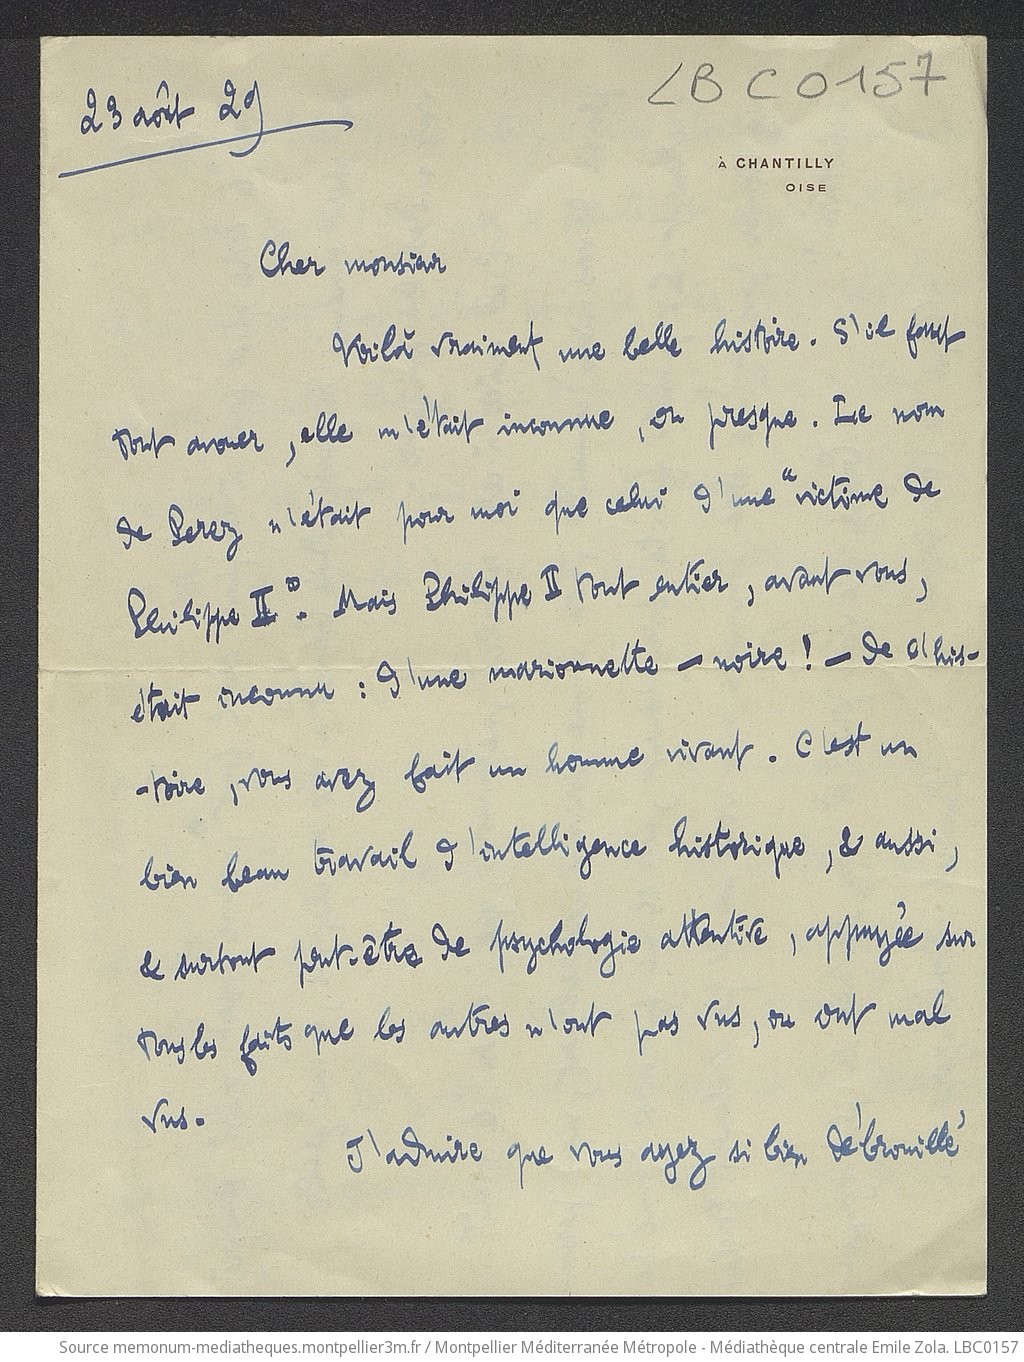 LBC0157
23 août 29
À CHANTILLY
OISE
Cher monsieur
Voilà vraiment une belle histoire. S'il faut
tout avouer, elle m'était inconnue, ou presque. Le nom
de Perez n'était pour moi que celui d'une "victime de
Philippe II". Mais Philippe II tout entier, avant vous,
était inconnu : d'une marionnette – noire ! – de l'his-
-toire, vous avez fait un homme vivant. C'est un
bien beau travail d'intelligence historique, & aussi,
& surtout peut-être de psychologie attentive, appuyée sur
tous les faits que les autres n'ont pas vus, ou ont mal
vus.
J'admire que vous ayez si bien débrouillé
Source memonum-mediatheques.montpellier3m.fr / Montpellier Méditerranée Métropole - Médiathèque centrale Emile Zola. LBC0157